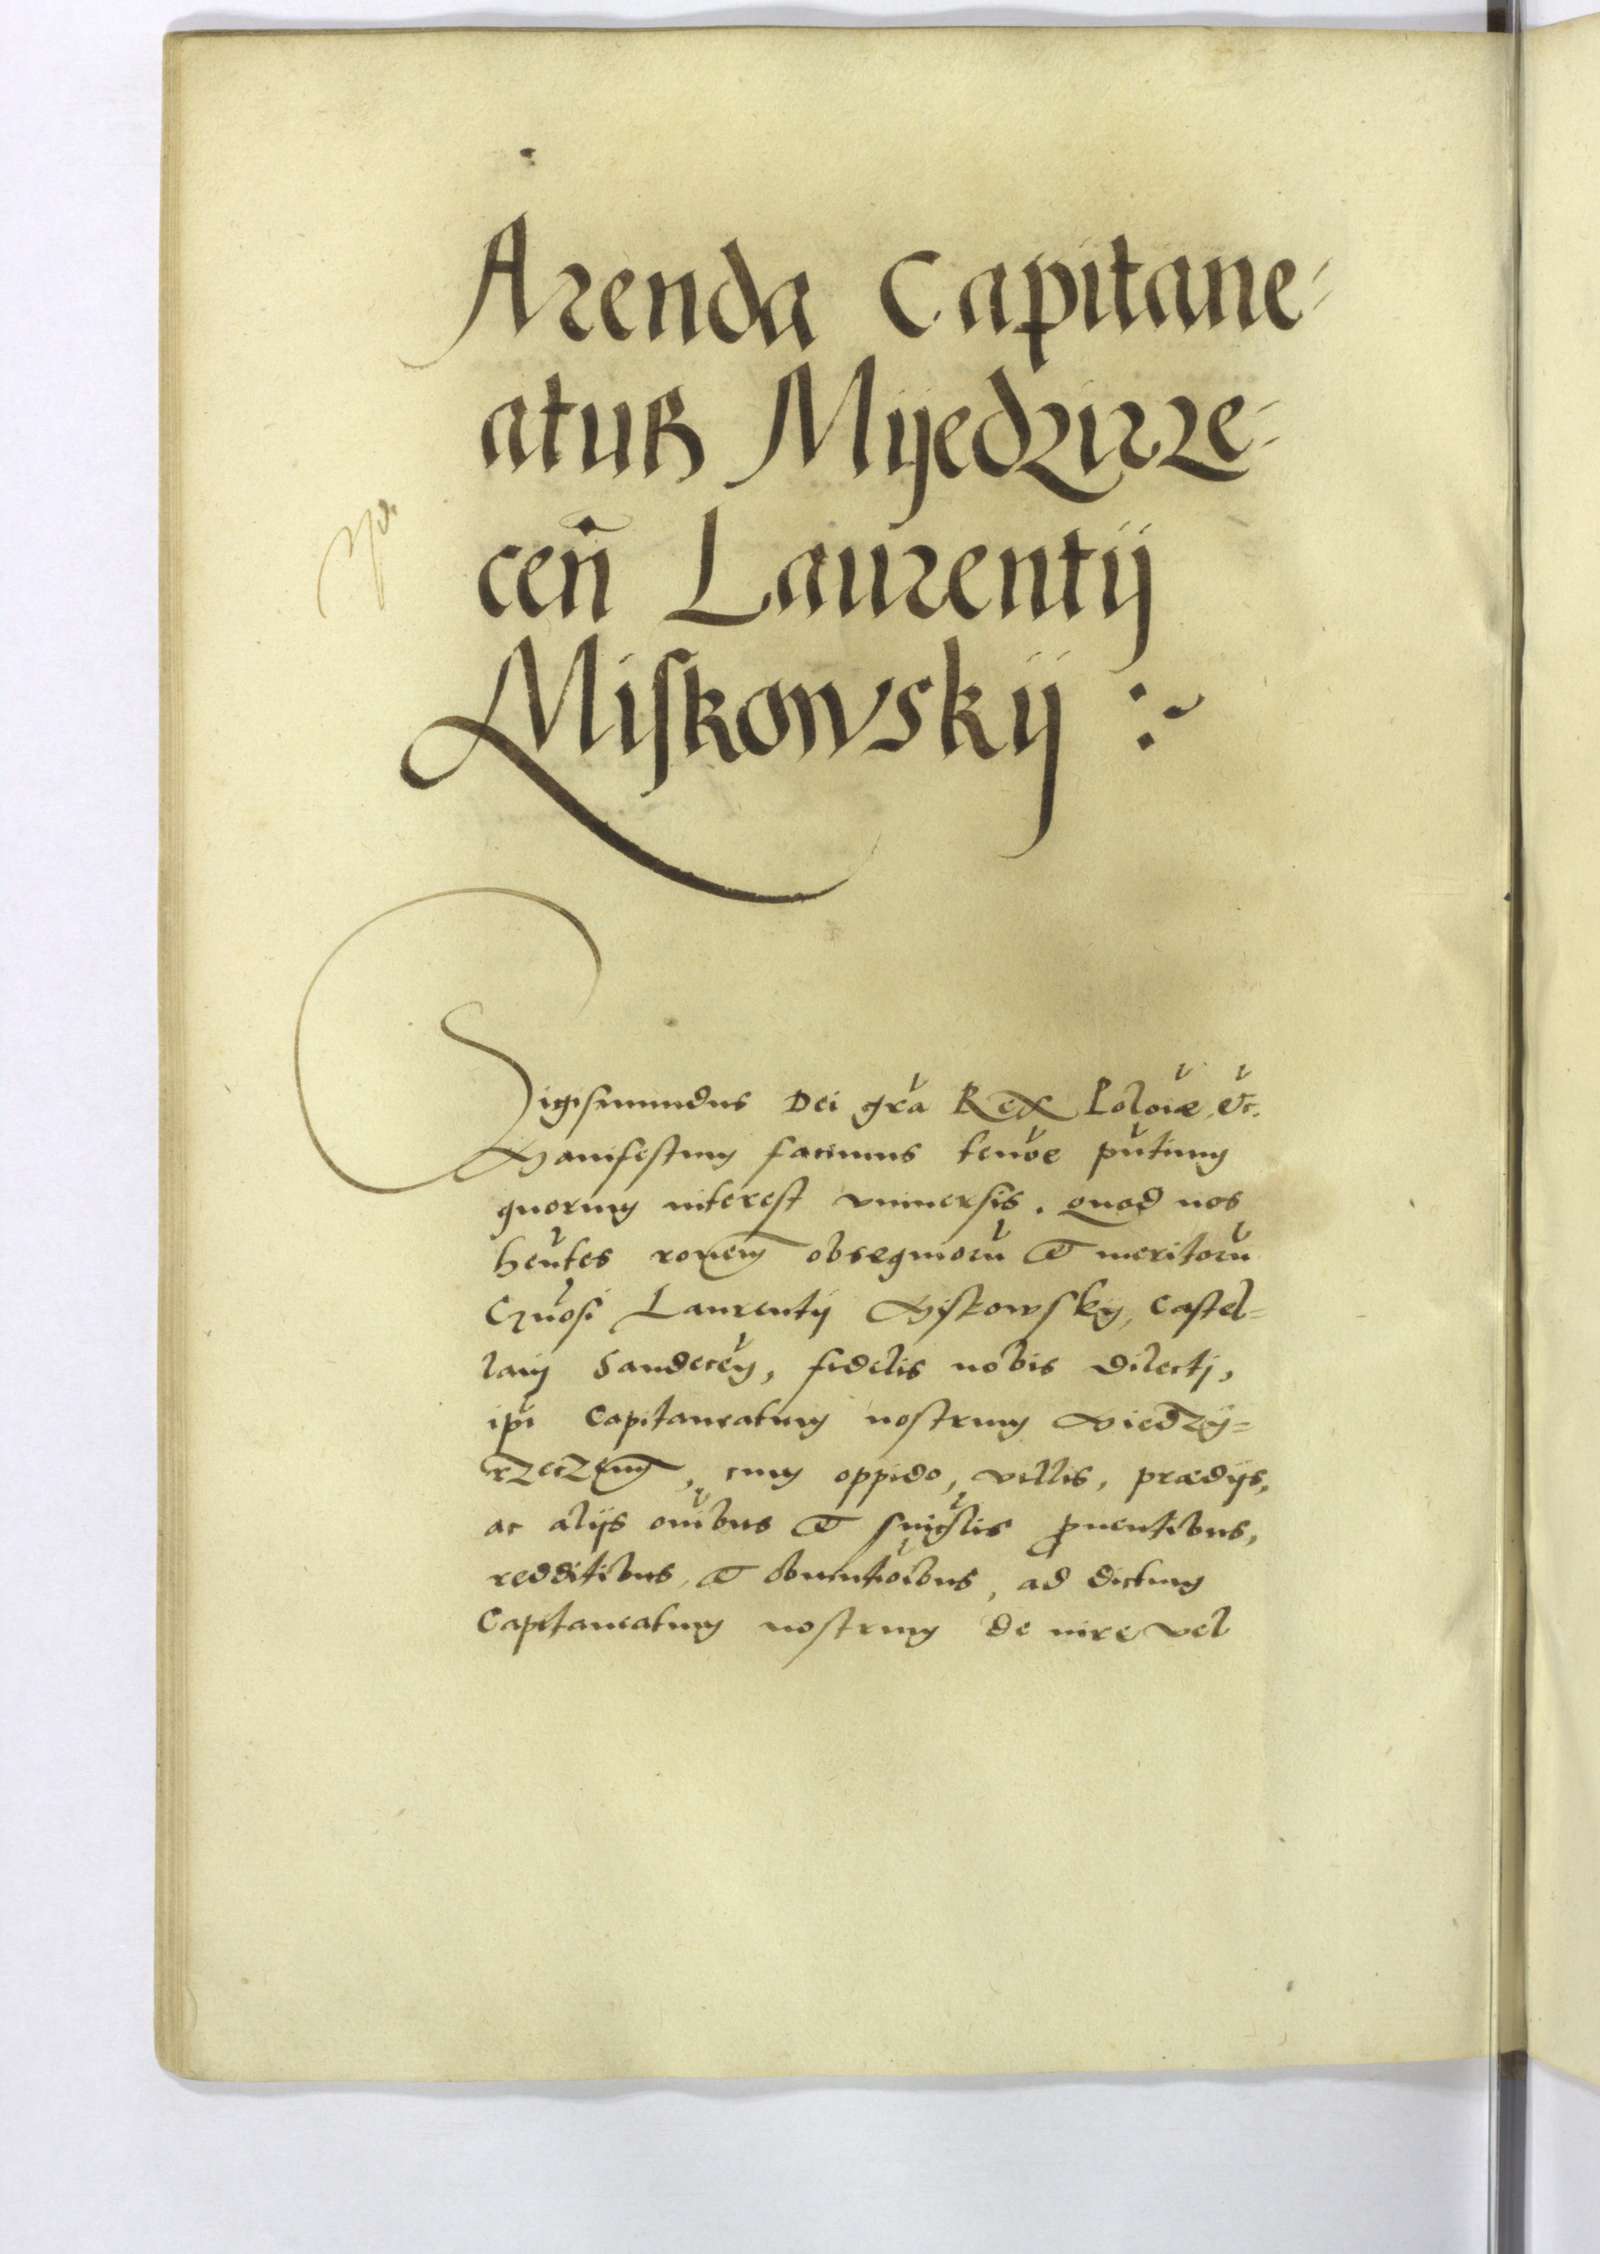 Arenda Capitane-
atus Mijedzirze-
cen̄ Laurentij
Miskowskij :~
Sigismundus Dei gr̃a Rex Polõiæ, &c̃.
Manifestum facimus tenõe pñtium
quorum interest vniuersis. quod nos
hẽntes rõnem obsequiorũ et meritorũ
Gñosi Laurentij Miskowskij, Castel=
lanj Sandecẽn, fidelis nobis dilectj,
ipĩ Capitaneatum nostrum Miedzÿ=
rzeczenm̃, cum oppido, villis, prædijs,
ac alijs oĩbus et sĩgĩs prouentibus,
redditibus, et obuentiõibus, ad dictum
Capitaneatum nostrum de iure vel